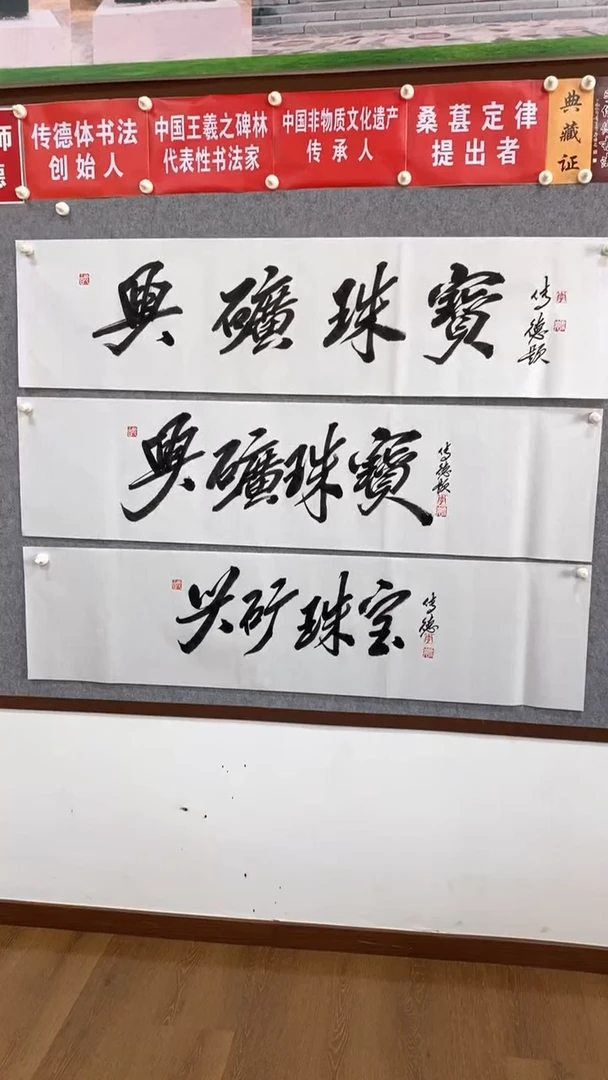 师
德
传德体书法
创始人
中国王羲之碑林
代表性书法家
中国非物质文化遗产
传承人
桑葚定律
提出者
典藏证
興礦珠寶
传德题
興礦珠寶
传德题
兴矿珠宝
传德